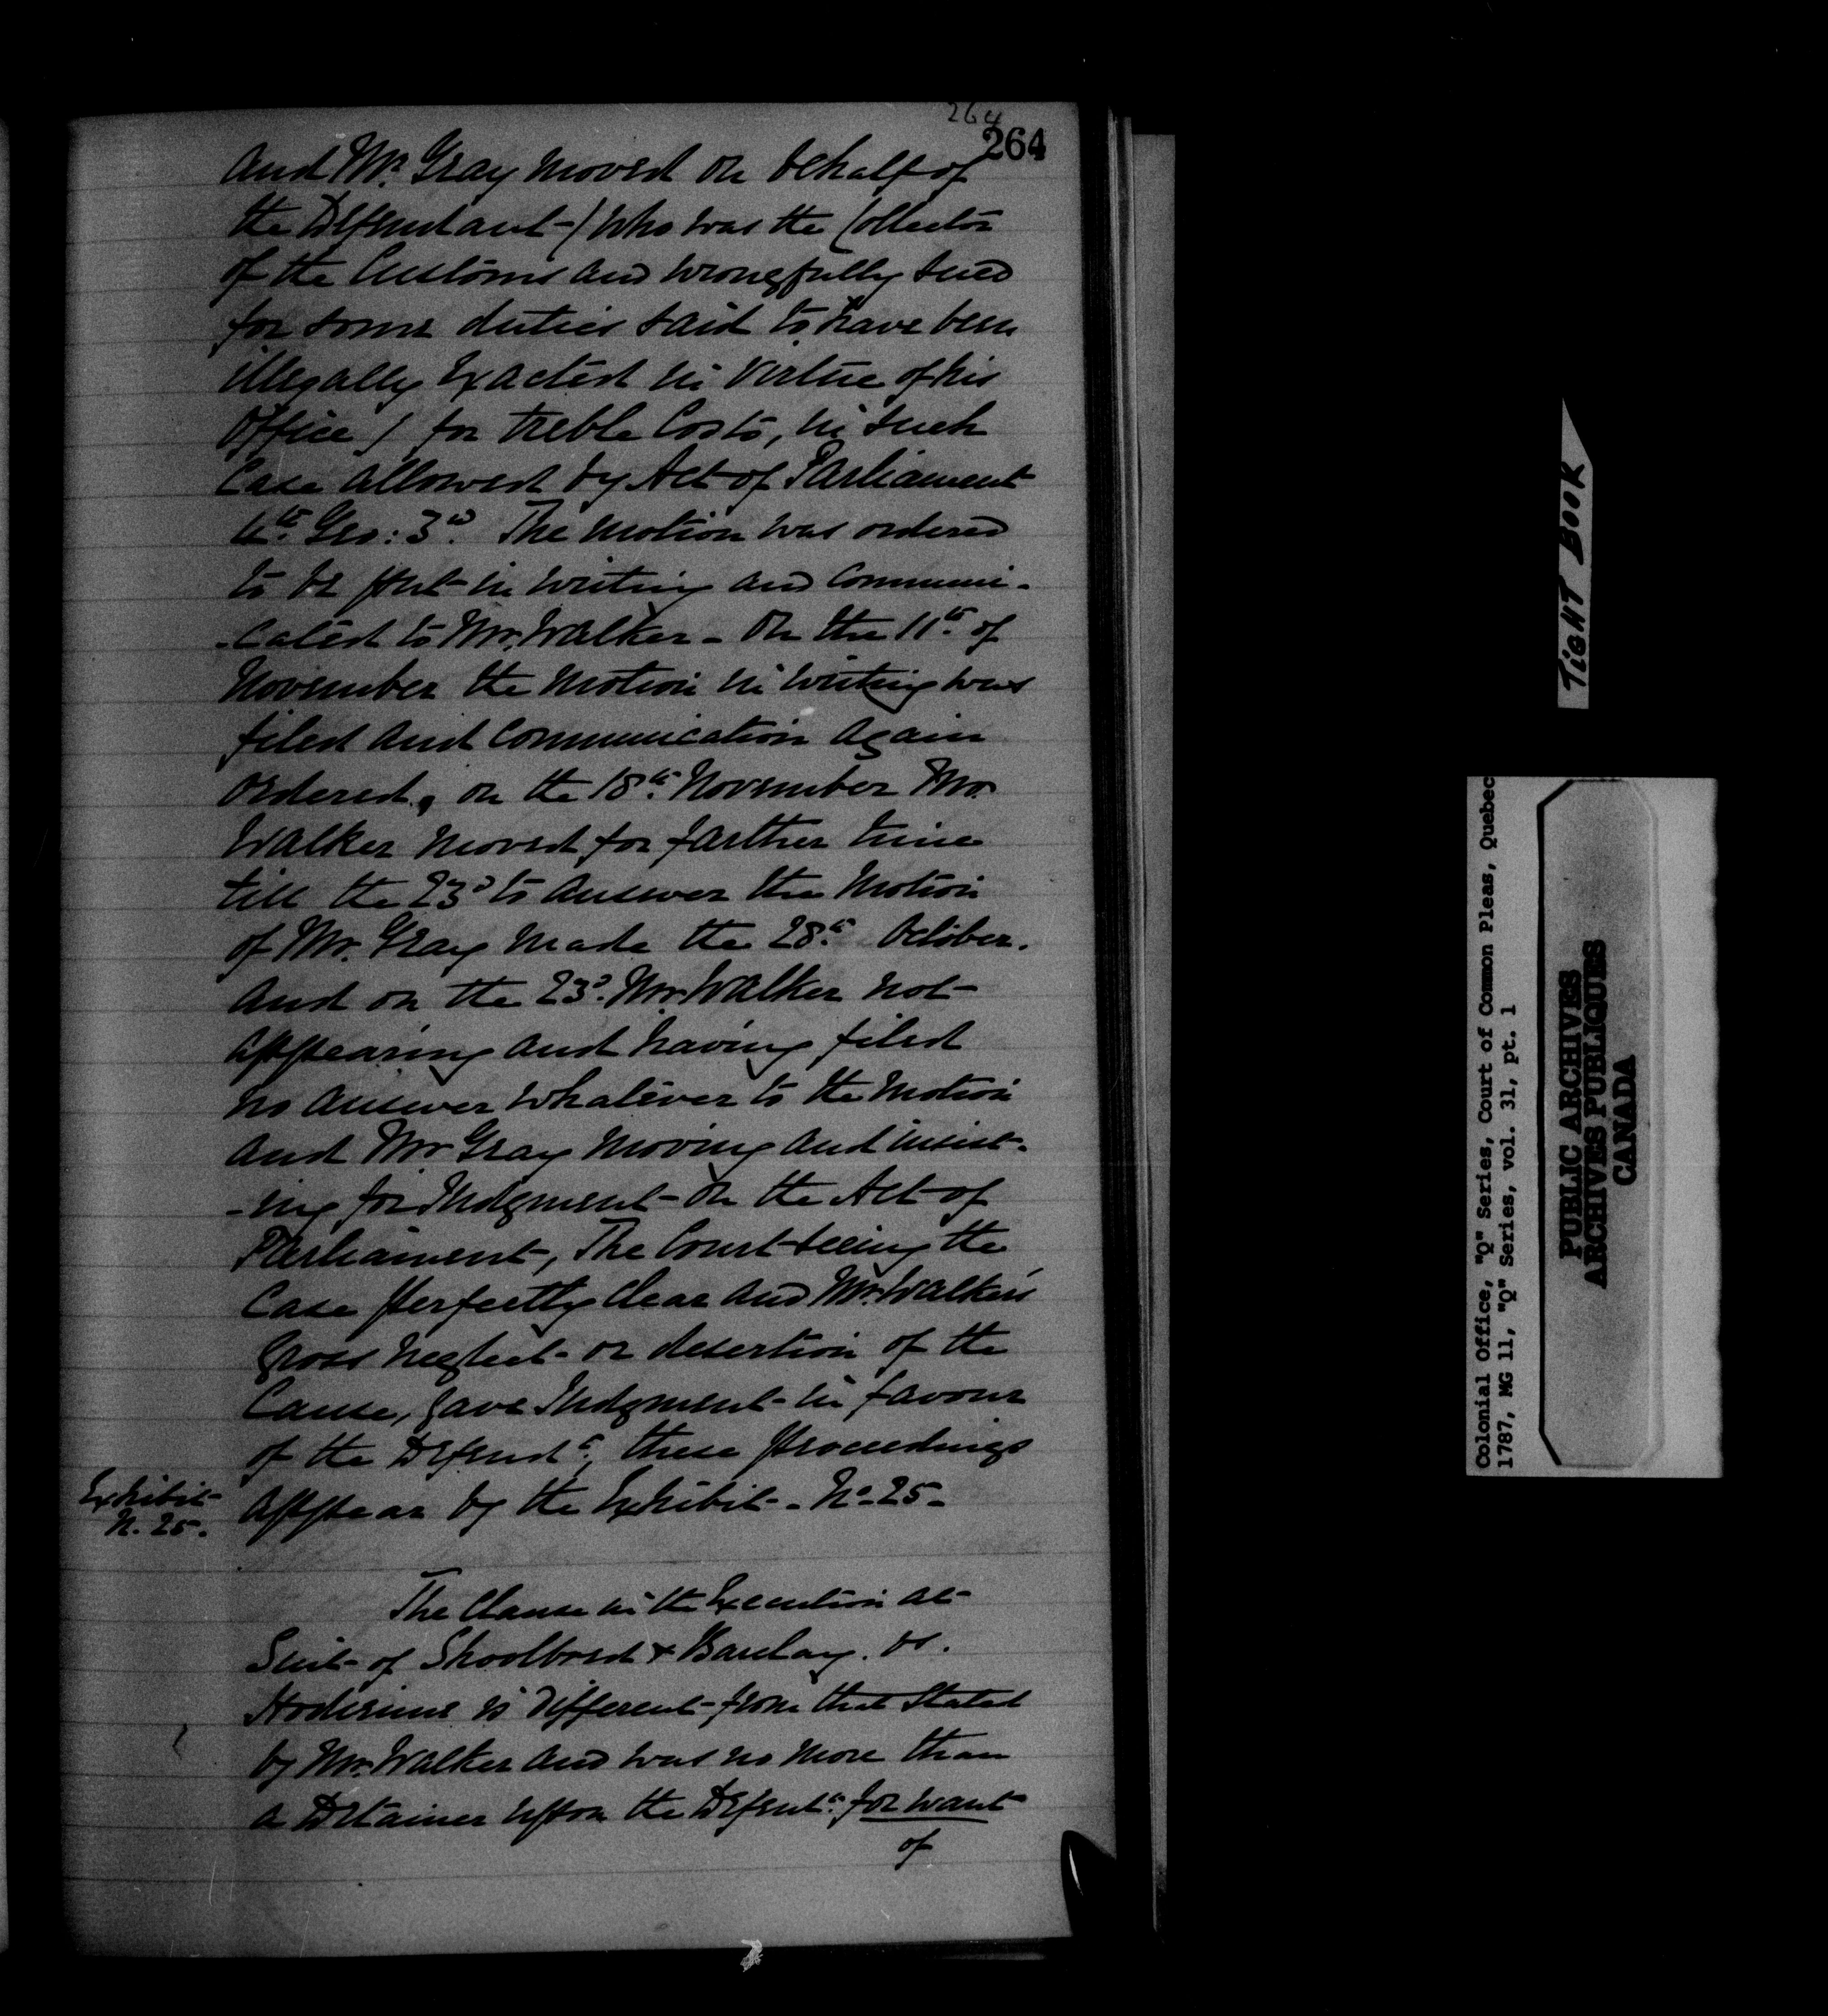 264
264
and Mr. Gray moved on behalf of
the Defendant - (who was the Collector
of the Customs and wrongfully sued
for some duties said to have been
illegally Exacted in Virtue of his
Office) for treble Costs, in such
Case allowed by Act of Parliament
Geo: 3d. The motion was ordered
to be put in writing and Communi-
-cated to Mr. Walker - On the 11th of
November the Motion in writing was
filed and Communication again
ordered, on the 18th November Mr.
Walker moved for farther time
till the 23d to answer the Motion
of Mr. Gray made the 28th October.
And on the 23d. Mr. Walker not
appearing and having filed
no answer whatever to the Motion
and Mr Gray moving and insist-
-ing for Judgment - on the Act of
Parliament, The Court seeing the
Case perfectly clear and Mr. Walker's
gross neglect - or desertion of the
Cause, gave Judgment in favour
of the Defendt; these proceedings
appear by the Exhibit - No. 25 -
Exhibit
N. 25.
The Clause in the Execution at
Suit of Shoolbred & Barclay. vs.
is different from that stated
by Mr. Walker and was no more than
a Detainer upon the Defendt. for want
of
TIGHT BOOK
Colonial Office, "Q" Series, Court of Common Pleas, Quebec
1787, MG 11, "Q" Series, vol. 31, pt. 1
PUBLIC ARCHIVES
ARCHIVES PUBLIQUES
CANADA